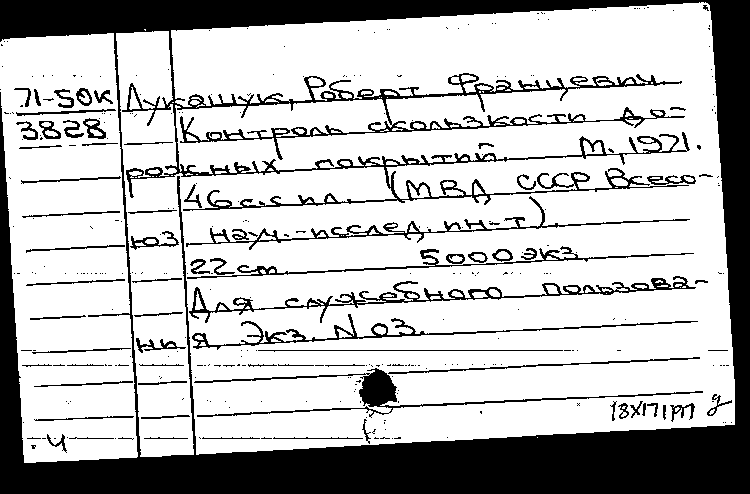 71-50к Лукашук, Роберт Францевич.
3828 Контроль скользкости до-
рожных покрытий. М., 1971.
46 с. с ил. (МВД СССР. Всесо-
юз. науч.-исслед. ин-т).
22 см. 5000 экз.
Для служебного пользова-
ния. Экз. N 03.
18XI71рп
.ч